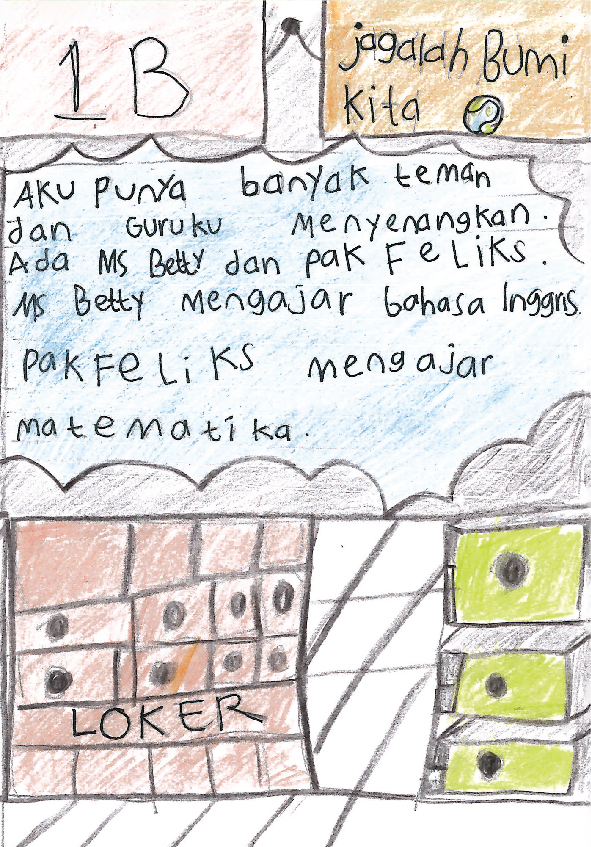 1 B
jagalah Bumi
kita
AKU PUNYA banyak teman
dan GURUKU MENYENANGKAN.
Ada MS Betty dan pak FeLiKS.
MS Betty mengajar bahasa Inggris.
PaKFeLiKS mengajar
matematika.
LOKER